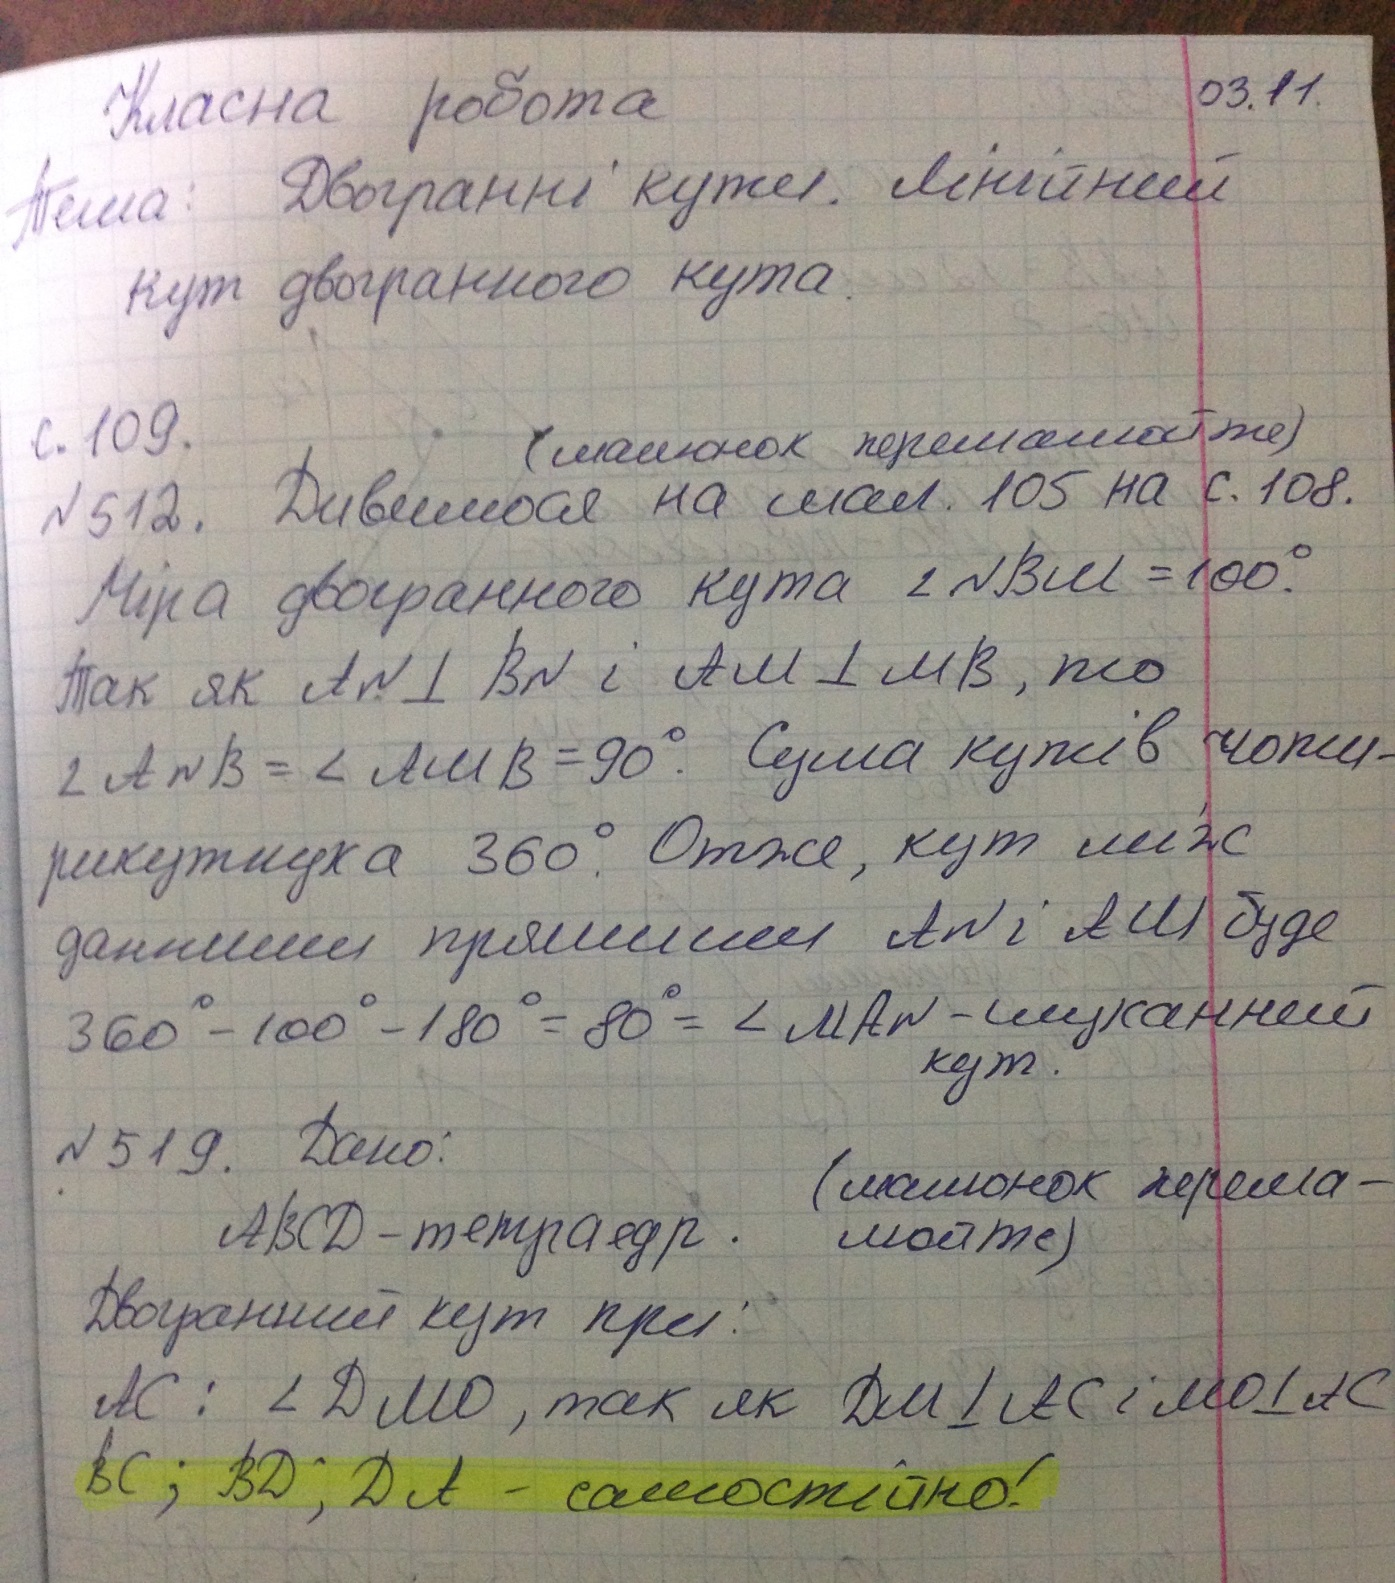 Класна робота 03.11.
Тема: Двогранні кути. Лінійний
кут двогранного кута.
с. 109. (малюнок перемалюйте)
№512. Дивимося на мал. 105 на с. 108.
Міра двогранного кута ∠NBM = 100°.
Так як AN ⊥ BN і AM ⊥ MB, то
∠ANB = ∠AMB = 90°. Сума кутів чоти-
рикутнука 360°. Отже, кут між
данними прямими AN і AM буде
360° - 100° - 180° = 80° = ∠MAN - шуканний
кут.
№519. Дано: (малюнок перема-
ABCD - тетраедр. люйте)
Двогранний кут при:
AC: ∠DMO, так як DM ⊥ AC і MO ⊥ AC
BC; BD; DA - самостійно!